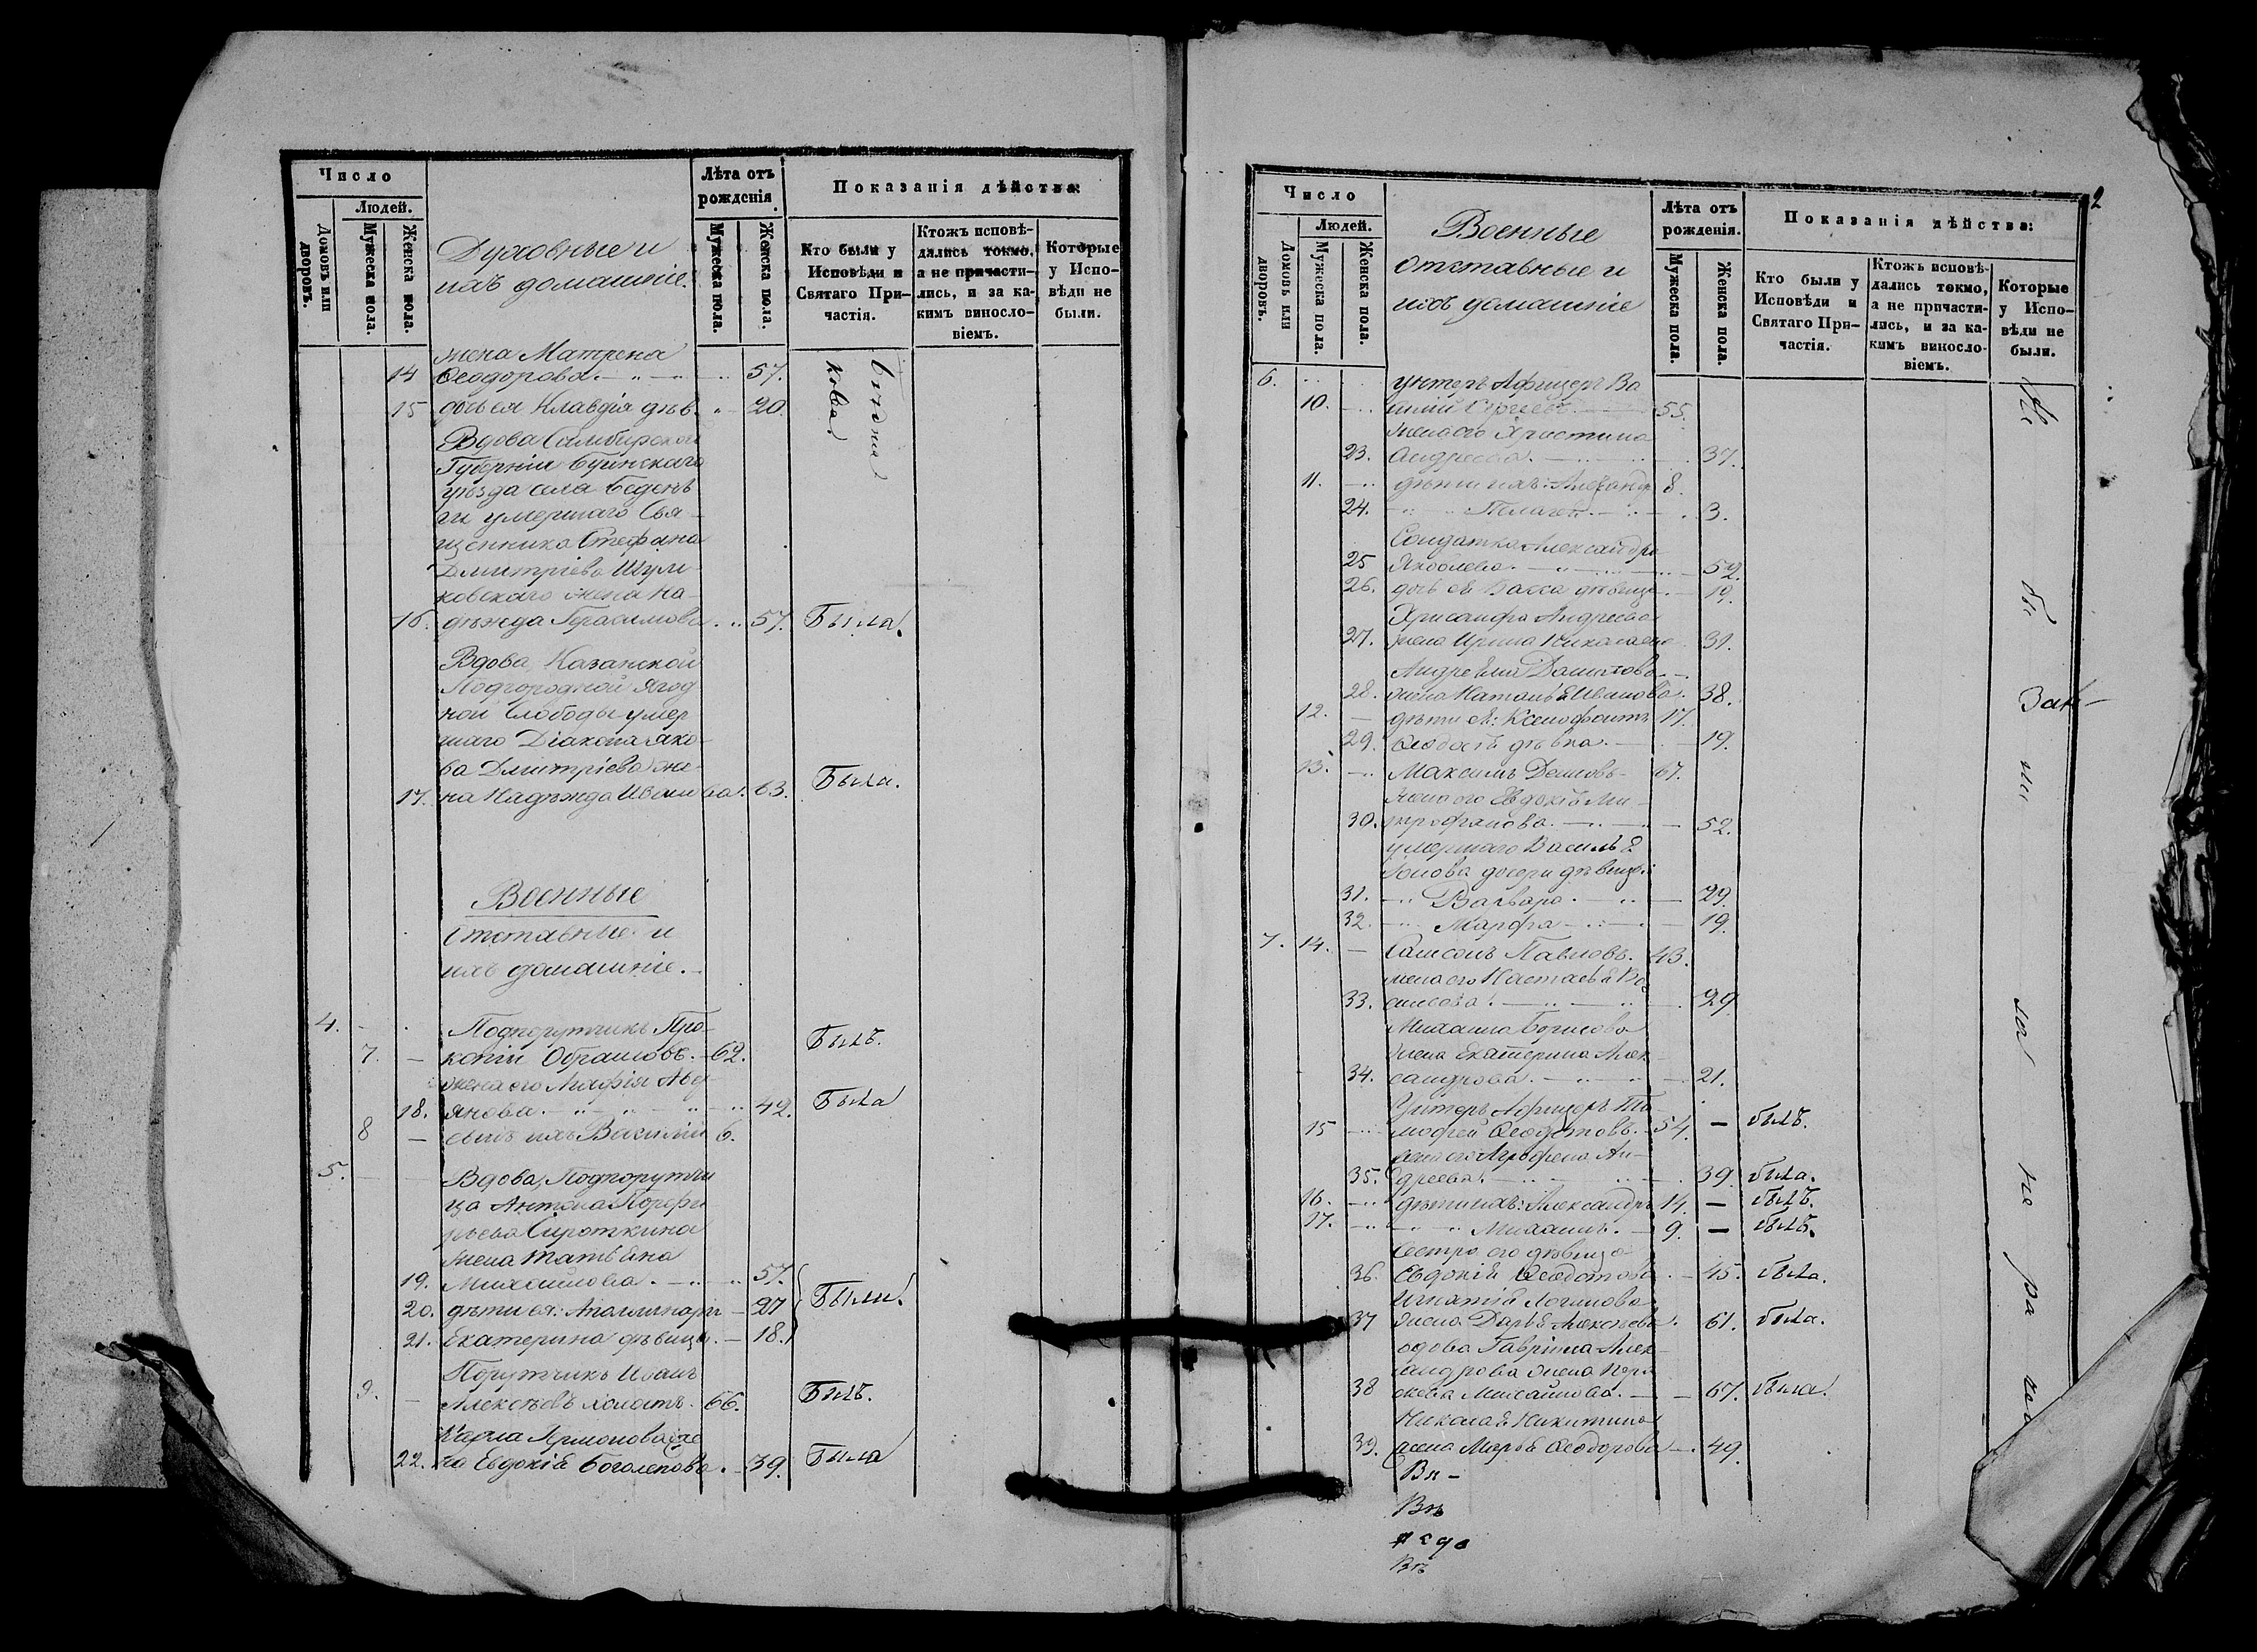 Число
Людей.
Домовъ или дворовъ.
Мужеска пола.
Женска пола.
Духовные и
ихъ домашніе.
Лѣта отъ рожденія.
Мужеска пола.
Женска пола.
Показанія дѣйства:
Кто были у Исповѣди и Святаго Причастія.
Ктожъ исповѣдались токмо, а не причастились, и за какимъ винословіемъ.
Которые у Исповѣди не были.
жена Матрена
14 Ѳеодорова. 57.
15 дочь ея Клавдія дѣв. 20.
Вдова Симбирской
Губерніи Буинскаго
уѣзда села Беденъ
ги умершаго Свя-
щенника Стефана
Дмитріева Шум-
ковскаго жена На-
16. дѣжда Герасимова 57. Была.
Вдова, Казанской
Подгородной Ягод
ной Слободы умер
шаго Діакона Яко-
ва Дмитріева же-
17. на Надѣжда Иванова. 63. Была.
Военные
Отставные и
ихъ домашніе.
4. Подпорутчикъ Про-
7. — копій 62. Былъ.
жена его
18. янова. 42. Была
8 — сынъ ихъ Василій 6.
5. Вдова, Подпорутчи
ка Антона Порфи
рьева Сироткина
жена Татьяна
19. Михайлова. 57.
20. дѣти ея: Аполлинарія 27 Были.
21. Екатерина дѣвица. 18.
Порутчикъ Иванъ
9. — Алексѣевъ холостъ. 66. Былъ.
Карла Ермонова же
22. на Евдокія Боголепова. 39. Была
2
Число
Людей.
Домовъ или дворовъ.
Мужеска пола.
Женска пола.
Военные
отставные и
ихъ домашніе
Лѣта отъ рожденія.
Мужеска пола.
Женска пола.
Показанія дѣйства:
Кто были у Исповѣди и Святаго Причастія.
Ктожъ исповѣдались токмо, а не причастились, и за какимъ винословіемъ.
Которые у Исповѣди не были.
6. унтеръ Афицеръ Ва
10. силій Сергѣевъ. 55.
жена его Христина
23. Андреева. 37.
11. дѣти ихъ: Александръ 8.
24. Пелагея. 3.
Солдатка Александра
25 Яковлева. 52.
26. дочь ея Васса дѣвица. 19.
Хрисанфа Андреева
27. жена Ирина Николаева 31.
Андреяна Данилова
28. жена Наталья Иванова. 38.
12. — дѣти ея: Ксенофонтъ 17.
29. Ѳеодосія дѣвка. 19.
13. Максимъ Демовъ 67.
жена его Евдокія Ми-
30. трофанова. 52.
умершаго Василья
Іонова дочери дѣвицы
31. Варвара. 29.
32. Марфа 19.
7. 14. — Самсонъ Павловъ. 43.
жена его Настасья
33. 29
Михаила Борисова
жена Екатерина Алек-
34. сандрова. 21.
Унтеръ Афицеръ Ти-
15 мофей Ѳеодотовъ. 54. — былъ.
жена его Аграфена Ан-
35. дреева. 39. была.
16. дѣти ихъ: Александръ 14. — былъ.
17. Михаилъ. 9. — былъ.
Сестра его дѣвица
36. Евдокія Ѳеодотова 45. была.
Игнатія Логинова
37 жена Дарья Алексѣева. 61. была.
вдова Гавріила Алек-
сандрова жена
38 Михайлова. 67. была.
Николая Никитина
39. жена Марья Ѳеодорова 49.